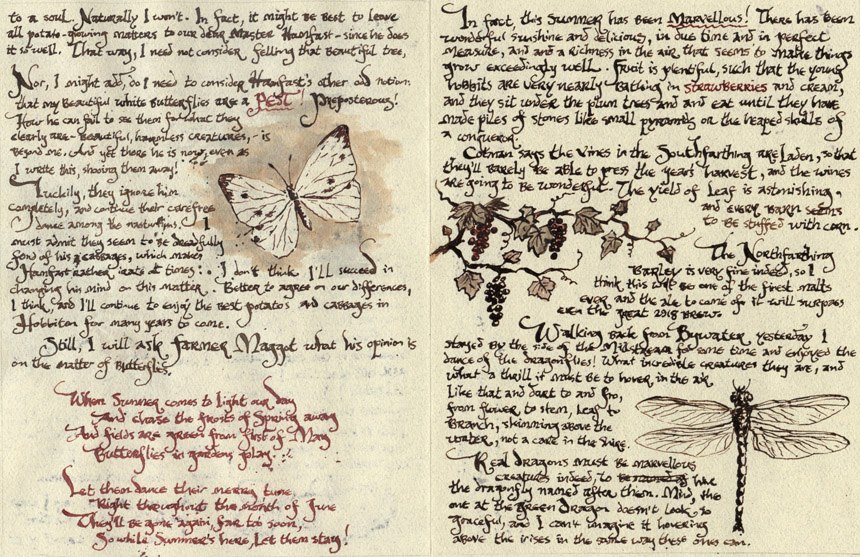 to a soul. Naturally I won't. In fact, it might be best to leave
all potato-growing matters to our dear Master Hamfast - since he does
it so well. That way, I need not consider felling that beautiful tree,
Nor, I might add, do I need to consider Hamfast's other odd notion
that my beautiful white butterflies are a PEST! Preposterous!
How he can fail to see them for what they
clearly are - beautiful, harmless creatures, - is
beyond me. And yet there he is now, even as
I write this, shooing them away!
Luckily, they ignore him
completely, and continue their carefree
dance among the nasturtiums. I
must admit they seem to be dreadfully
fond of his cabbages, which makes
Hamfast rather irate at times... I don't think I'll succeed in
changing his mind on this matter. Better to agree on our differences,
I think, and I'll continue to enjoy the best potatos and cabbages in
Hobbiton for many years to come.
Still, I will ask Farmer Maggot what his opinion is
on the matter of butterflies.
When Summer comes to light our day
And chase the frosts of Spring away
And fields are green from first of May
Butterflies in gardens play.
Let them dance their merry tune,
Right throughout the month of June
They'll be gone again, far too soon,
So while Summer's here, Let them stay!
In fact, this Summer has been Marvellous! There has been
wonderful sunshine and delicious, in due time and in perfect
measure, and and a richness in the air that seems to make things
grow exceedingly well. Fruit is plentiful, such that the young
hobbits are very nearly bathing in strawberries and cream,
and they sit under the plum trees and and eat until they have
made piles of stones like small pyramids or the heaped skulls of
a conqueror.
Cotman says the vines in the Southfarthing are Laden, so that
they'll barely be able to press the years harvest, and the wines
are going to be wonderful. The yield of Leaf is astonishing,
and every barn seems
to be stuffed with corn.
The Northfarthing
Barley is very fine indeed, so I
think this will be one of the finest malts
ever and the ale to come of it will surpass
even the great 2918 brew.
Walking back from Bywater yesterday I
stayed by the side of the Millstream for some time and enjoyed the
dance of the dragonflies! What incredible creatures they are, and
what a thrill it must be to hover in the air
Like that and dart to and fro,
from flower to stem, leaf to
branch, skimming above the
water, not a care in the Shire.
Real dragons must be marvellous
creatures indeed, to be like
the dragonfly named after them. Mind, the
one at the green dragon doesn't look so
graceful, and I can't imagine it hovering
above the irises in the same way these ones can.